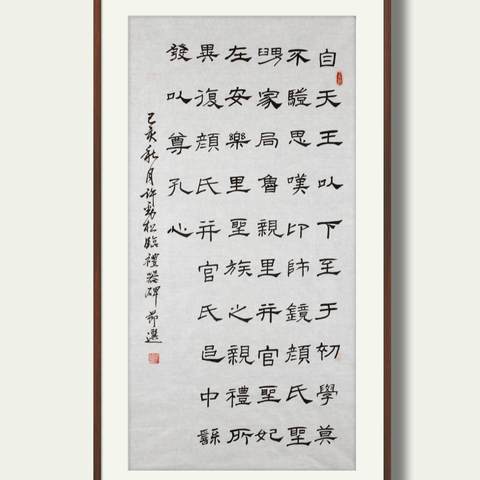 自天王以下至于初學莫
不驥思嘆卬師鏡顏氏聖
舅家居魯親里并官聖妃
在安樂里聖族之親禮所
異復顏氏并官氏邑中繇
發以尊孔心
己亥秋月許松臨禮器碑節選